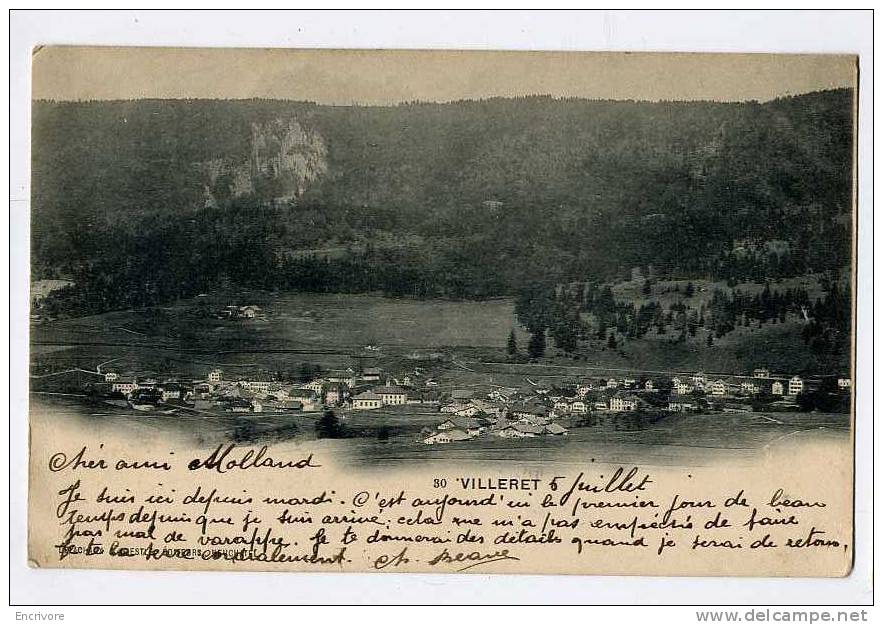 30 VILLERET 5 juillet
Chèr ami Molland
Je suis ici depuis mardi. C'est aujourd'hui le premier jour de beau
temps depuis que je suis arrivé; cela ne m'a pas empêché de faire
pas mal de varappe. Je te donnerai des détails quand je serai de retour,
Je te la serre cordialement. Ch.
NEUCHATEL
Encrivore
www.delcampe.net